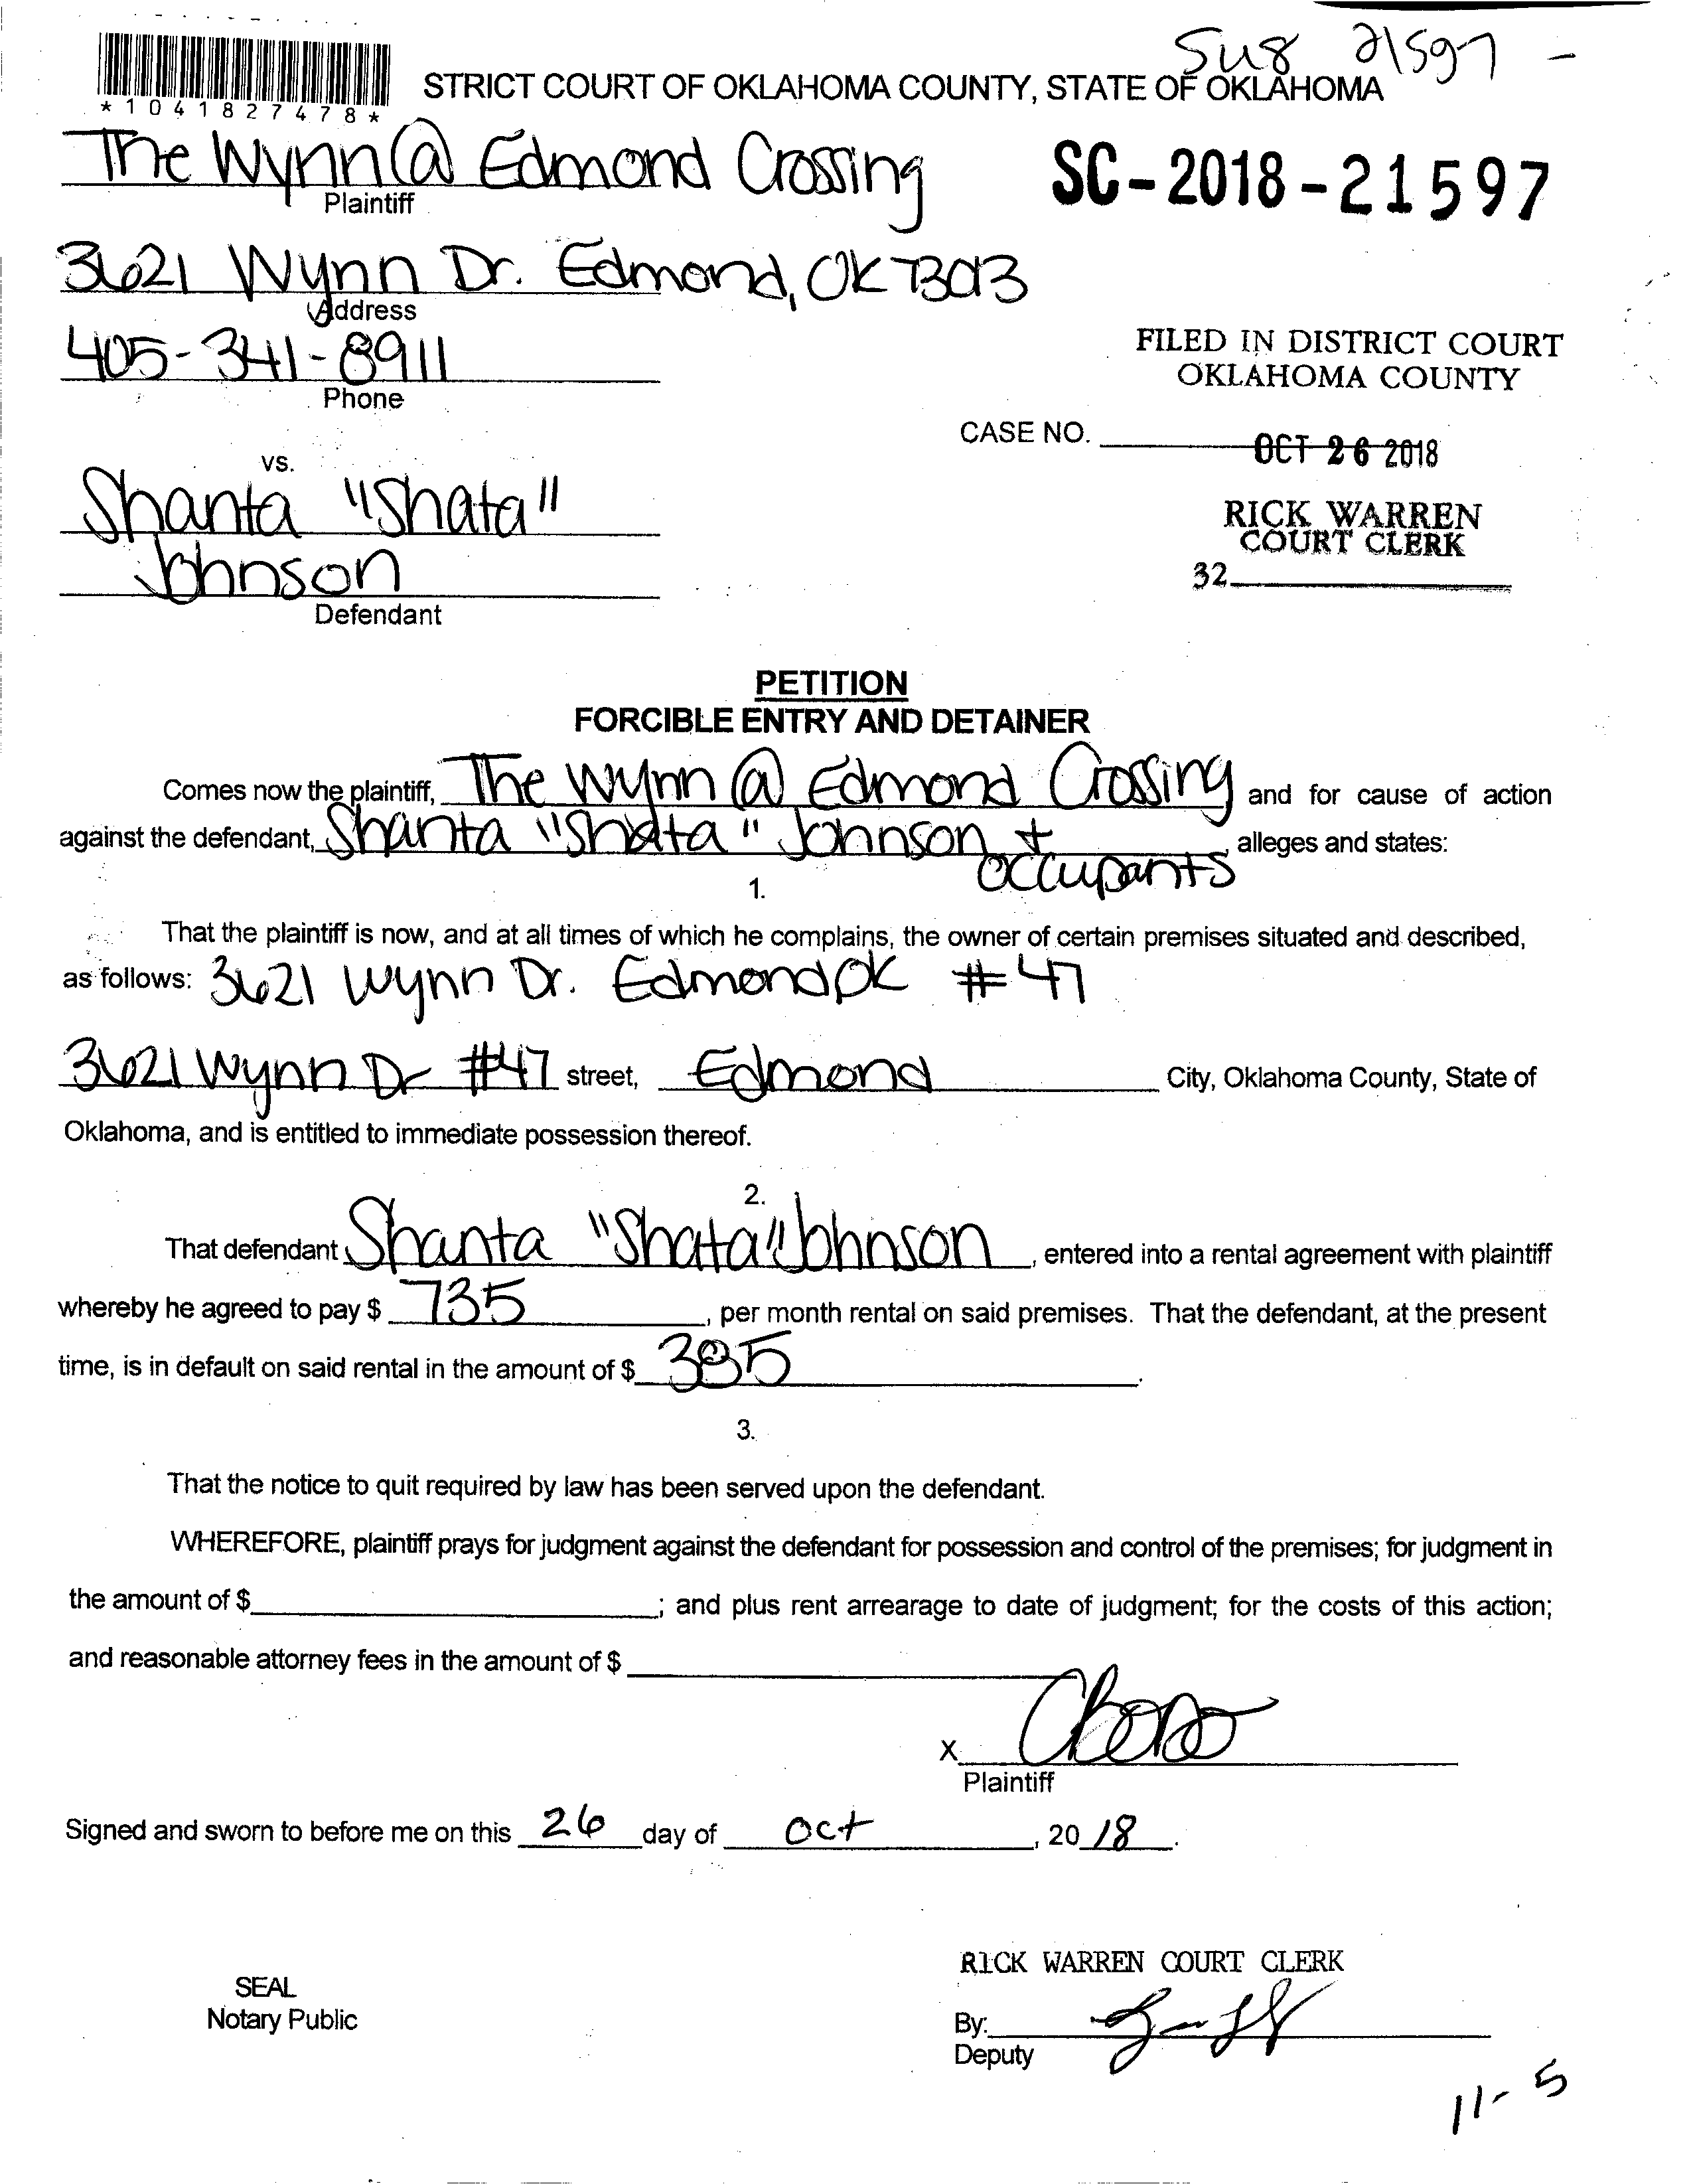 SU8 21597 -
*1041827478*
STRICT COURT OF OKLAHOMA COUNTY, STATE OF OKLAHOMA
The Wynn @ Edmond Crossing
Plaintiff
SC-2018-21597
3621 Wynn Dr. Edmond, OK 73013
Address
405-341-8911
Phone
FILED IN DISTRICT COURT
OKLAHOMA COUNTY
CASE NO.
OCT 26 2018
vs.
Shanta "Shata"
Johnson
Defendant
RICK WARREN
COURT CLERK
32
PETITION
FORCIBLE ENTRY AND DETAINER
Comes now the plaintiff, The Wynn @ Edmond Crossing and for cause of action
against the defendant, Shanta "Shata" Johnson + occupants, alleges and states:
1.
That the plaintiff is now, and at all times of which he complains, the owner of certain premises situated and described,
as follows: 3621 Wynn Dr. Edmond OK #47
3621 Wynn Dr #47 street, Edmond City, Oklahoma County, State of
Oklahoma, and is entitled to immediate possession thereof.
2.
That defendant Shanta "Shata" Johnson, entered into a rental agreement with plaintiff
whereby he agreed to pay $ 735, per month rental on said premises. That the defendant, at the present
time, is in default on said rental in the amount of $ 385.
3.
That the notice to quit required by law has been served upon the defendant.
WHEREFORE, plaintiff prays for judgment against the defendant for possession and control of the premises; for judgment in
the amount of $ ; and plus rent arrearage to date of judgment; for the costs of this action;
and reasonable attorney fees in the amount of $
X
Plaintiff
Signed and sworn to before me on this 26 day of Oct, 2018.
RICK WARREN COURT CLERK
SEAL
Notary Public
By:
Deputy
11-5